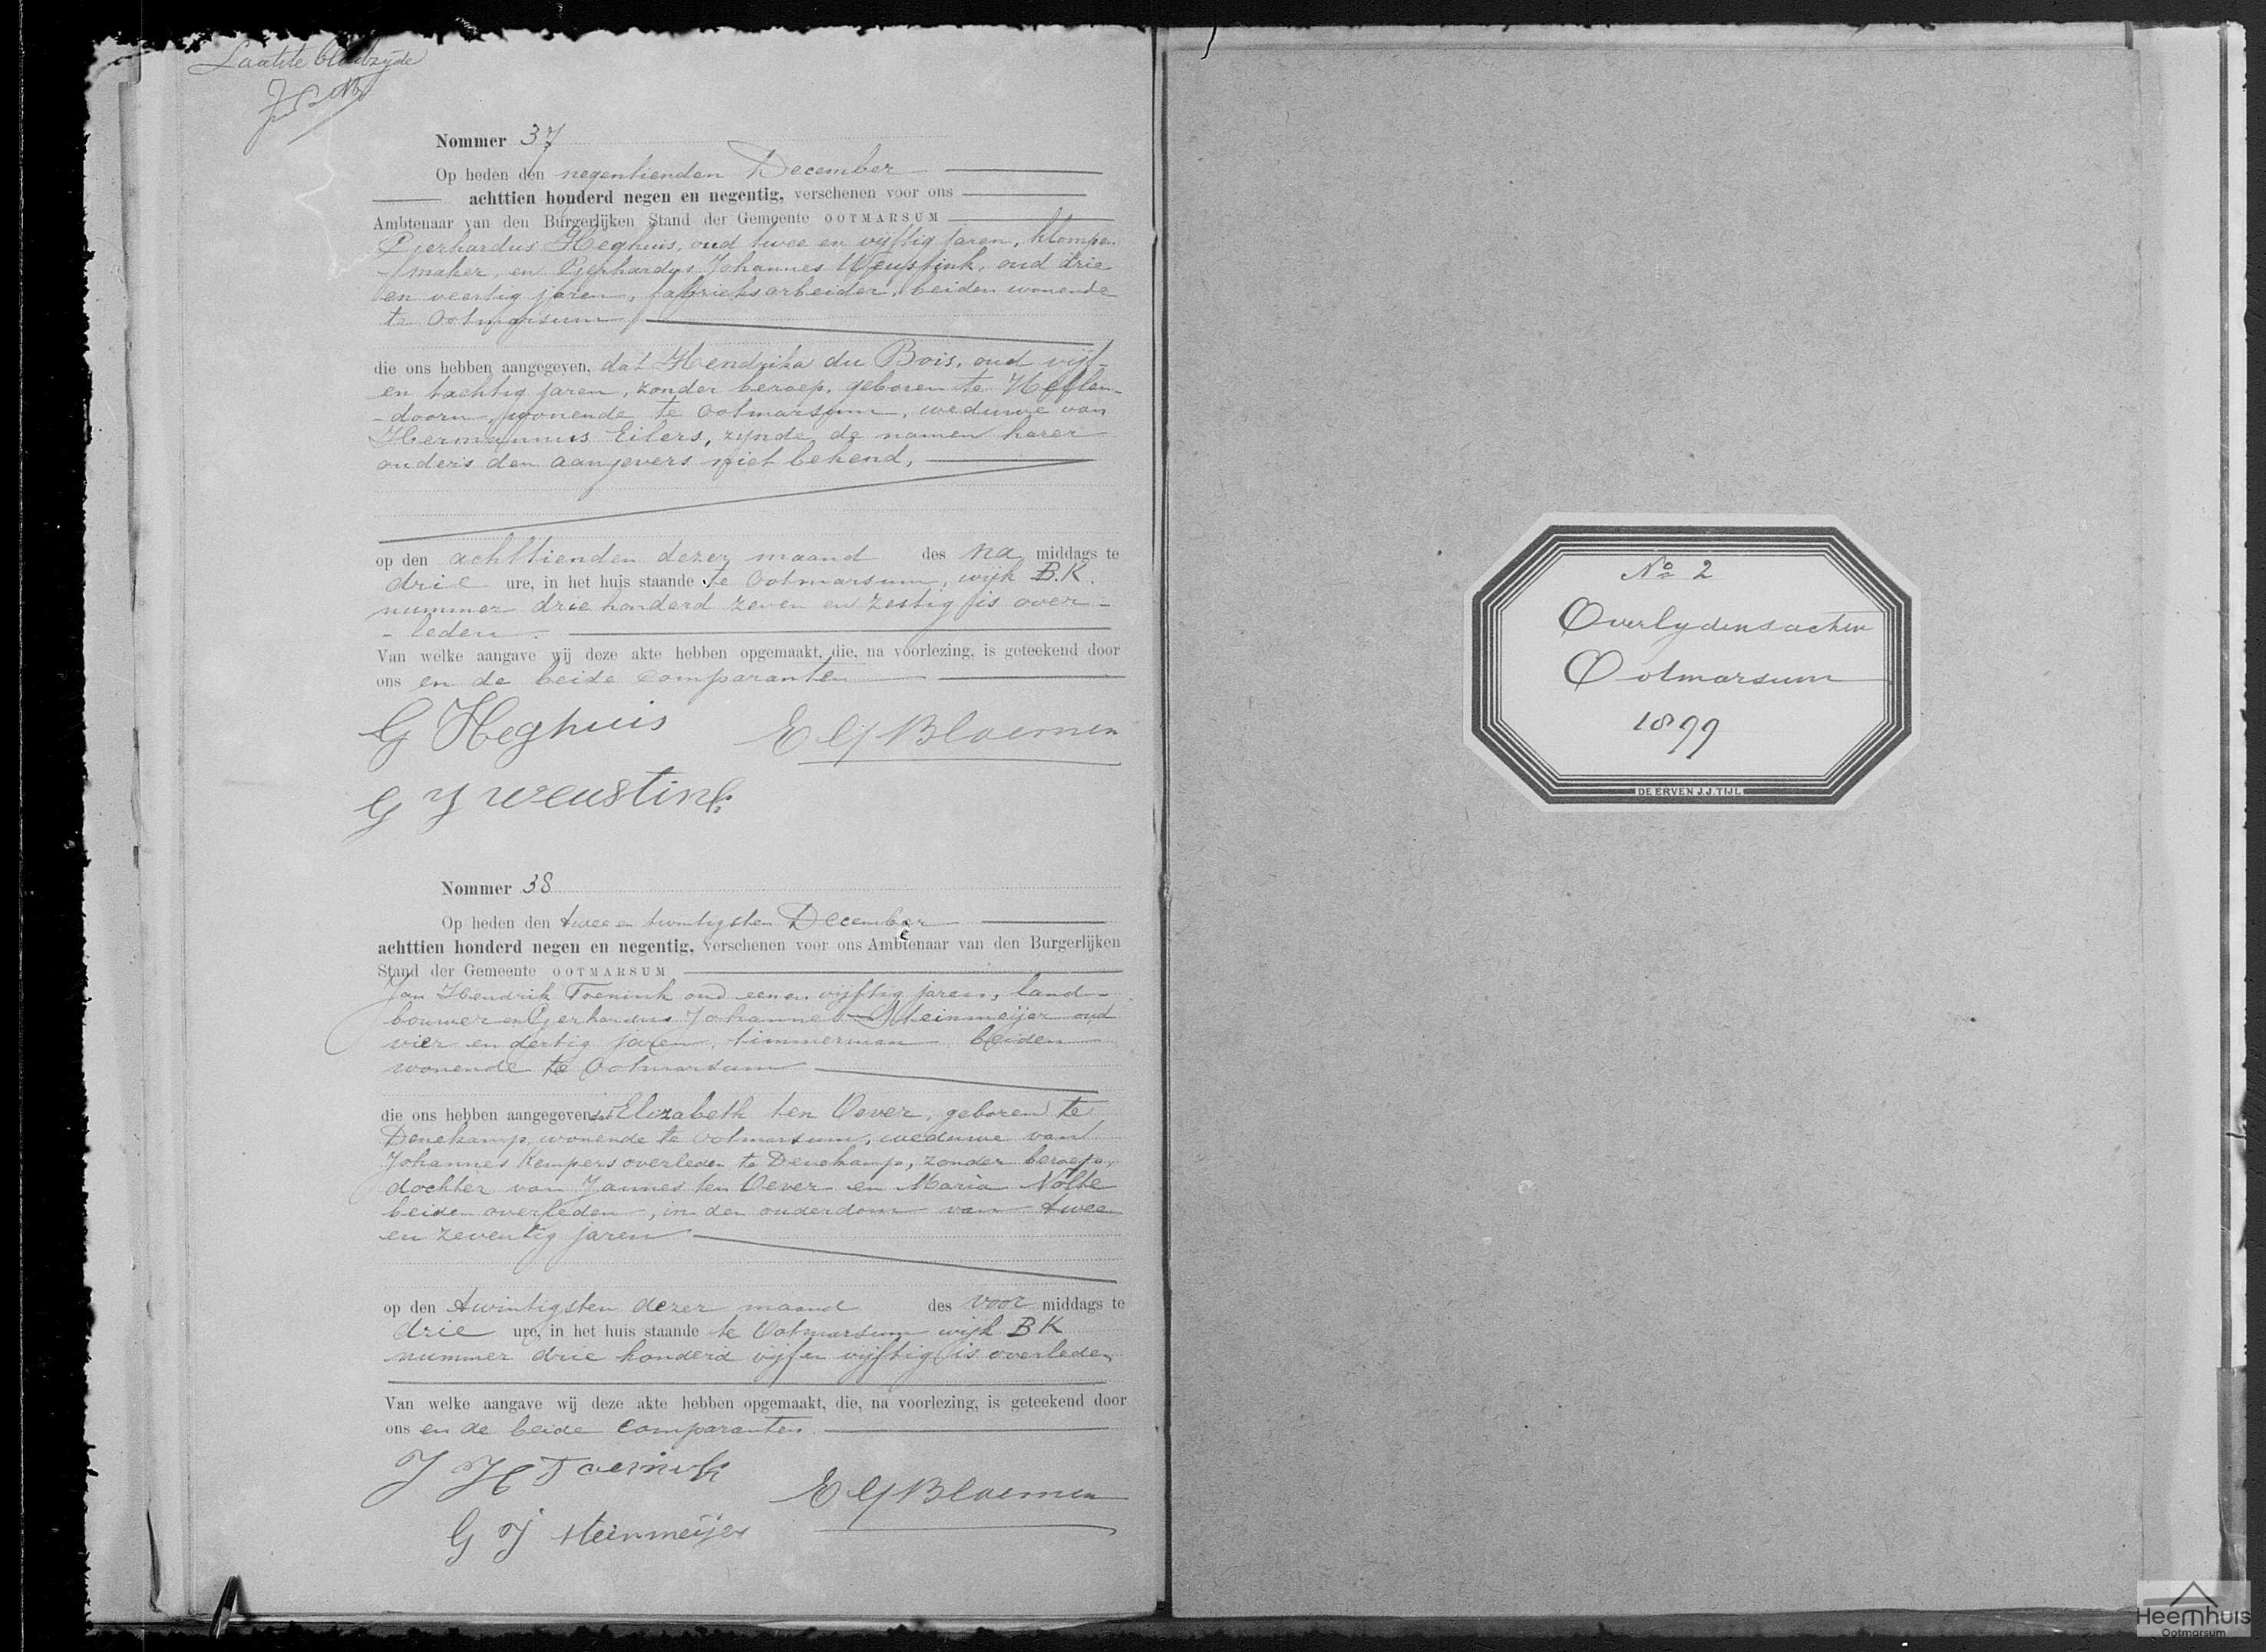 Laatste bladzijde
Nommer 37
Op heden den negentienden December
achttien honderd negen en negentig, verschenen voor ons
Ambtenaar van den Burgerlijken Stand der Gemeente OOTMARSUM
Gerhardus Heghuis, oud twee en vijftig jaren, klompen
-maker, en Gerhardus Johannes Weustink, oud drie
en veertig jaren, fabrieksarbeider, beiden wonende
te Ootmarsum
die ons hebben aangegeven, dat Hendrika du Bois, oud vijf
en tachtig jaren, zonder beroep, geboren te Hellen-
-doorn, wonende te Ootmarsum, weduwe van
Hermannus Eilers, zijnde de namen harer
ouders den aangevers niet bekend,
op den achttienden dezer maand des na middags te
drie ure, in het huis staande te Ootmarsum, wijk B.K.
nummer drie honderd zeven en zestig is over-
-leden.
Van welke aangave wij deze akte hebben opgemaakt, die, na voorlezing, is geteekend door
ons en de beide comparanten
G Heghuis E G Bloemen
G J Weustink
Nommer 38
Op heden den twee en twintigsten December
achttien honderd negen en negentig, verschenen voor ons Ambtenaar van den Burgerlijken
Stand der Gemeente OOTMARSUM
Jan Hendrik Toenink oud een en vijftig jaren, land-
bouwer en Gerhardus Johannes Steinmeijer oud
vier en dertig jaren, timmerman beiden
wonende te Ootmarsum
die ons hebben aangegeven dat Elizabeth ten Oever, geboren te
Denekamp, wonende te Ootmarsum, weduwe van
Johannes Kempers overleden te Denekamp, zonder beroep,
dochter van Jannes ten Oever en Maria Nolte
beiden overleden, in den ouderdom van twee
en zeventig jaren
op den twintigsten dezer maand des voor middags te
drie ure, in het huis staande te Ootmarsum wijk BK
nummer drie honderd vijf en vijftig is overleden
Van welke aangave wij deze akte hebben opgemaakt, die, na voorlezing, is geteekend door
ons en de beide comparanten.
J H Toenink
E G Bloemen
G J Steinmeijer
No 2
Overlydensacten
Ootmarsum
1899
DE ERVEN J.J. TIJL
Heemhuis
Ootmarsum